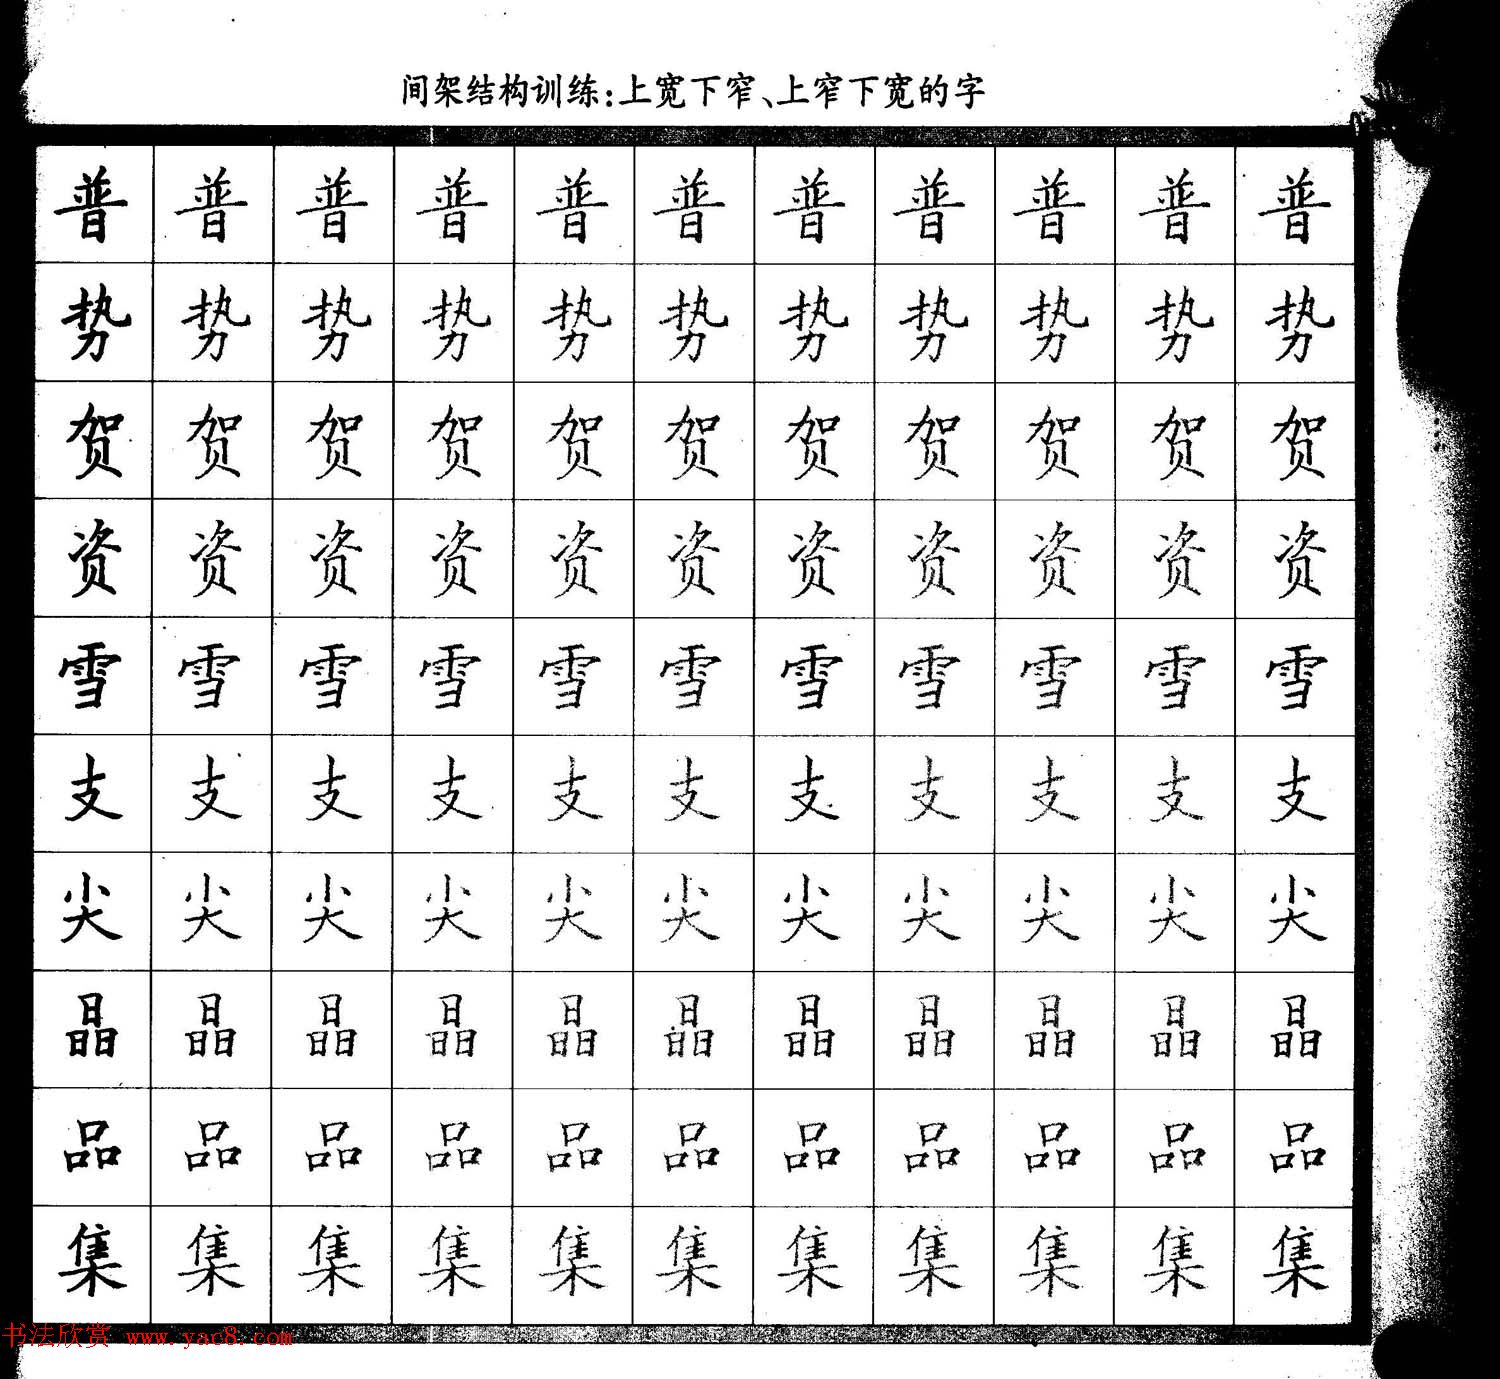 间架结构训练:上宽下窄、上窄下宽的字
普普普普普普普普普普普
势势势势势势势势势势势
贺贺贺贺贺贺贺贺贺贺贺
资资资资资资资资资资资
雪雪雪雪雪雪雪雪雪雪雪
支支支支支支支支支支支
尖尖尖尖尖尖尖尖尖尖尖
晶晶晶晶晶晶晶晶晶晶晶
品品品品品品品品品品品
集集集集集集集集集集集
书法欣赏 www.yac8.com